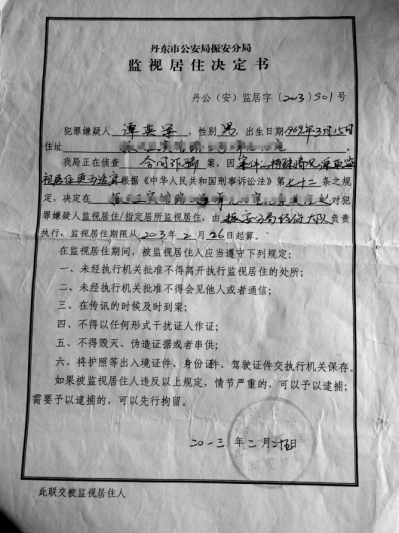 丹东市公安局振安分局
监视居住决定书
丹公（安）监居字〔2013〕501号
犯罪嫌疑人 谭 ，性别 男 出生日期 1969年3月15日
住址
我局正在侦查 合同诈骗 案，因 案件 特殊情况 监
视居住更为适宜 根据《中华人民共和国刑事诉讼法》第 七十二 条之规
定，决定在 对犯
罪嫌疑人监视居住/指定居所监视居住，由 振安分局经侦大队 负责
执行，监视居住期限从2013年2月26日起算。
在监视居住期间，被监视居住人应当遵守下列规定：
一、未经执行机关批准不得离开执行监视居住的处所；
二、未经执行机关批准不得会见他人或者通信；
三、在传讯的时候及时到案；
四、不得以任何形式干扰证人作证；
五、不得毁灭、伪造证据或者串供；
六、将护照等出入境证件、身份证件、驾驶证件交执行机关保存。
如果被监视居住人违反以上规定，情节严重的，可以予以逮捕；
需要予以逮捕的，可以先行拘留。
二〇一三年二月 日
此联交被监视居住人